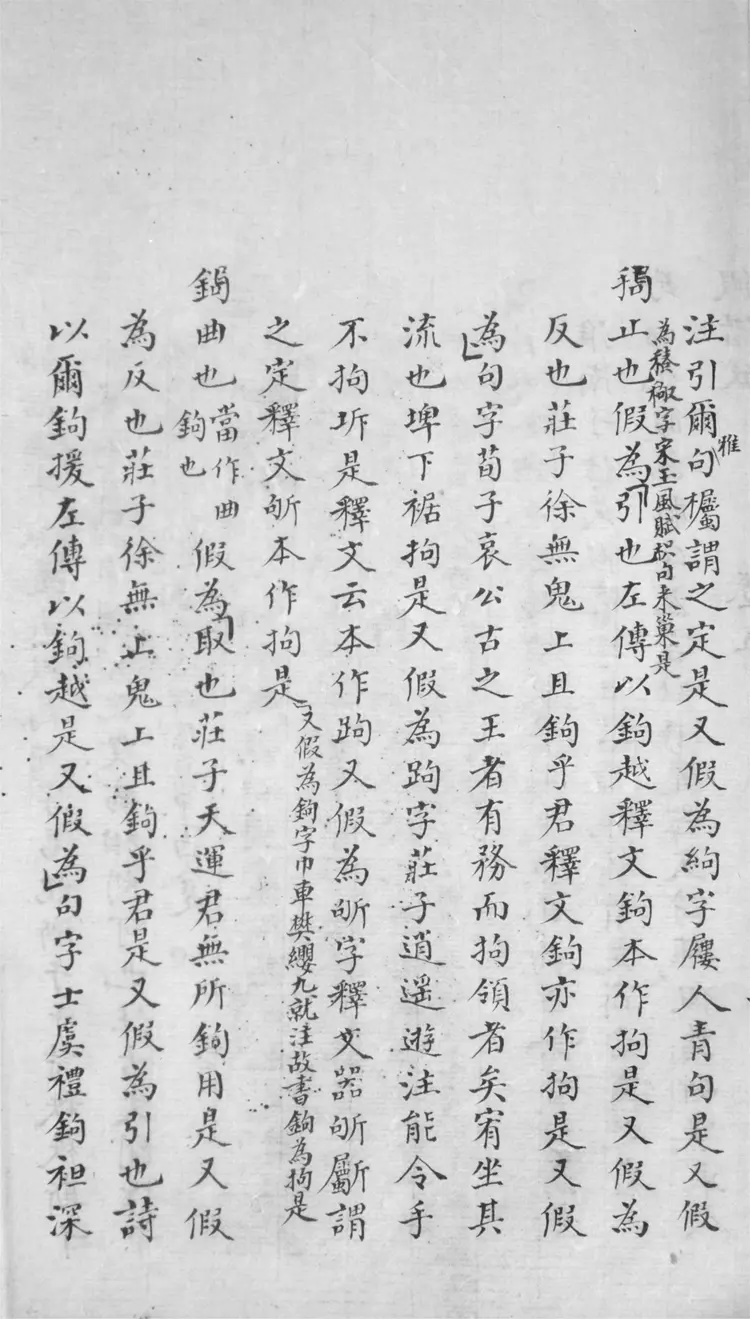 注引爾雅句欘謂之定是又假為絇字屨人青句是又假
為䅳𣖌字宋玉風賦枳句來巢是
𥠻止也假為引也左傳以鉤越釋文鉤本作拘是又假為
反也莊子徐無鬼上且鉤乎君釋文鉤亦作拘是又假
為句字荀子哀公古之王者有務而拘領者矣宥坐其
流也埤下裾拘是又假為跔字莊子逍遥遊注能令手
不拘坼是釋文云本作跔又假為斪字釋文器斪斸謂
之定釋文斪本作拘是
又假為鉤字巾車樊纓九就注故書鉤為拘是
鉤曲也當作曲鉤也假為取也莊子天運君無所鉤用是又假
為反也莊子徐無鬼上且鉤乎君是又假為引也詩
以爾鉤援左傳以鉤越是又假為句字士虞禮鉤袒深